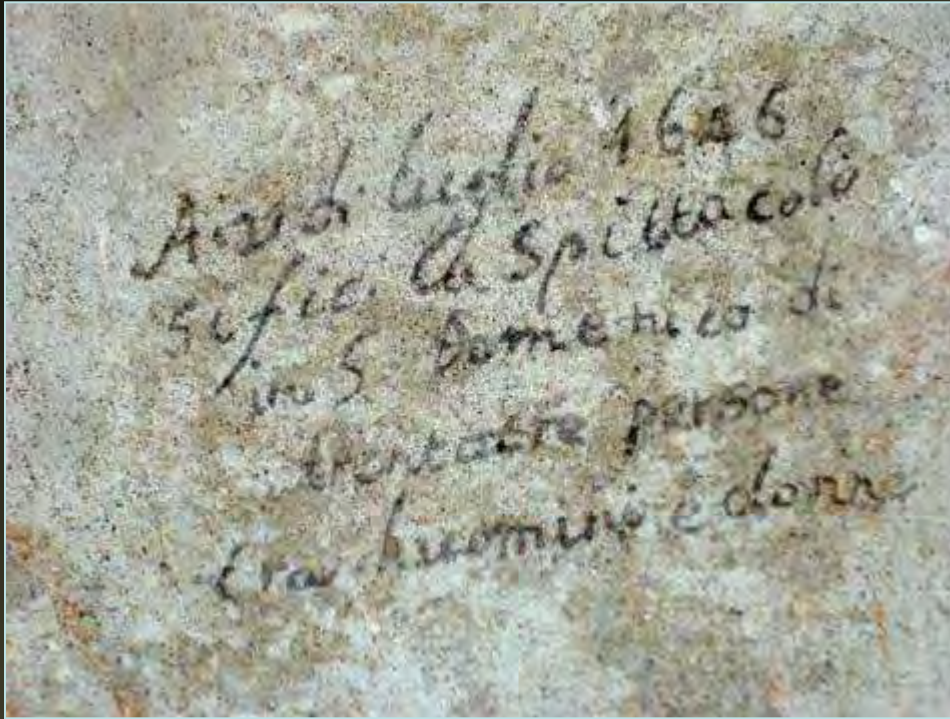 di luglio 1646
si fici la Spittacolo
in S. Domenico di
trentatre persone
tra huomini e donne